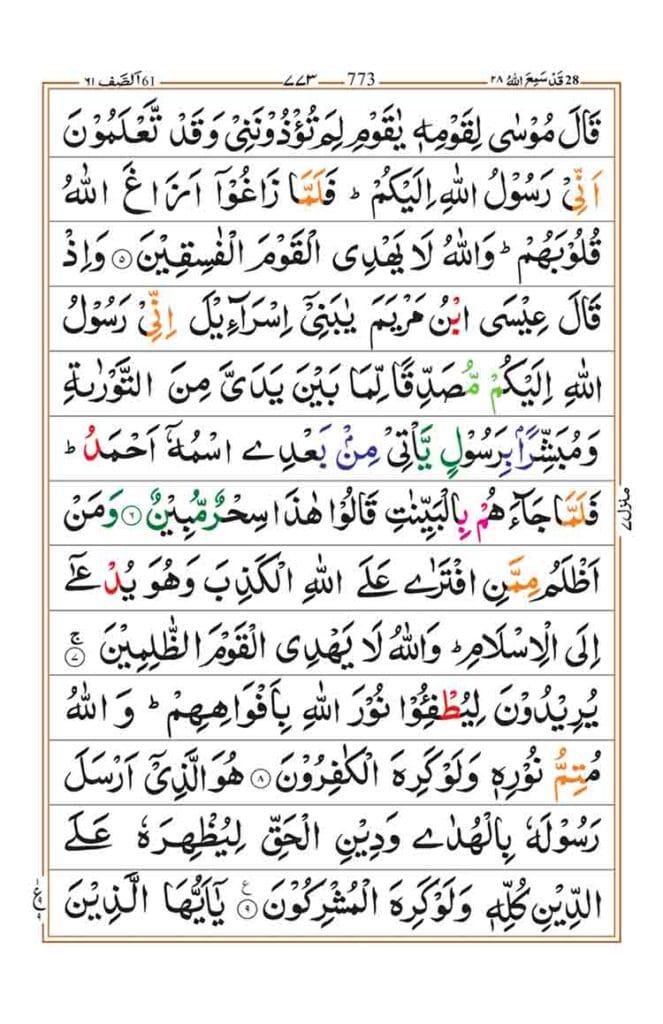 28 قَدْ سَمِعَ اللهُ ٢٨ 773 ٧٧٣ 61 اَلصَّف ٦١
قَالَ مُوْسٰى لِقَوْمِهٖ يٰقَوْمِ لِمَ تُؤْذُوْنَنِيْ وَقَدْ تَّعْلَمُوْنَ
اَنِّيْ رَسُوْلُ اللهِ اِلَيْكُمْ ؕ فَلَمَّا زَاغُوْۤا اَزَاغَ اللهُ
قُلُوْبَهُمْ ؕ وَاللهُ لَا يَهْدِى الْقَوْمَ الْفٰسِقِيْنَ ۝٥ وَاِذْ
قَالَ عِيْسَى ابْنُ مَرْيَمَ يٰبَنِيْۤ اِسْرَآءِيْلَ اِنِّيْ رَسُوْلُ
اللهِ اِلَيْكُمْ مُّصَدِّقًا لِّمَا بَيْنَ يَدَيَّ مِنَ التَّوْرٰىةِ
وَمُبَشِّرًاۢ بِرَسُوْلٍ يَّاْتِيْ مِنْۢ بَعْدِى اسْمُهٗۤ اَحْمَدُ ؕ
فَلَمَّا جَآءَهُمْ بِالْبَيِّنٰتِ قَالُوْا هٰذَا سِحْرٌ مُّبِيْنٌ ۝٦ وَمَنْ
اَظْلَمُ مِمَّنِ افْتَرٰى عَلَى اللهِ الْكَذِبَ وَهُوَ يُدْعٰۤى
اِلَى الْاِسْلَامِ ؕ وَاللهُ لَا يَهْدِى الْقَوْمَ الظّٰلِمِيْنَ ۝٧ ۚ
يُرِيْدُوْنَ لِيُطْفِـُٔوْا نُوْرَ اللهِ بِاَفْوَاهِهِمْ ؕ وَاللهُ
مُتِمُّ نُوْرِهٖ وَلَوْ كَرِهَ الْكٰفِرُوْنَ ۝٨ هُوَ الَّذِيْۤ اَرْسَلَ
رَسُوْلَهٗ بِالْهُدٰى وَدِيْنِ الْحَقِّ لِيُظْهِرَهٗ عَلَى
الدِّيْنِ كُلِّهٖ وَلَوْ كَرِهَ الْمُشْرِكُوْنَ ۝٩ ع يٰۤاَيُّهَا الَّذِيْنَ
منزل ٧